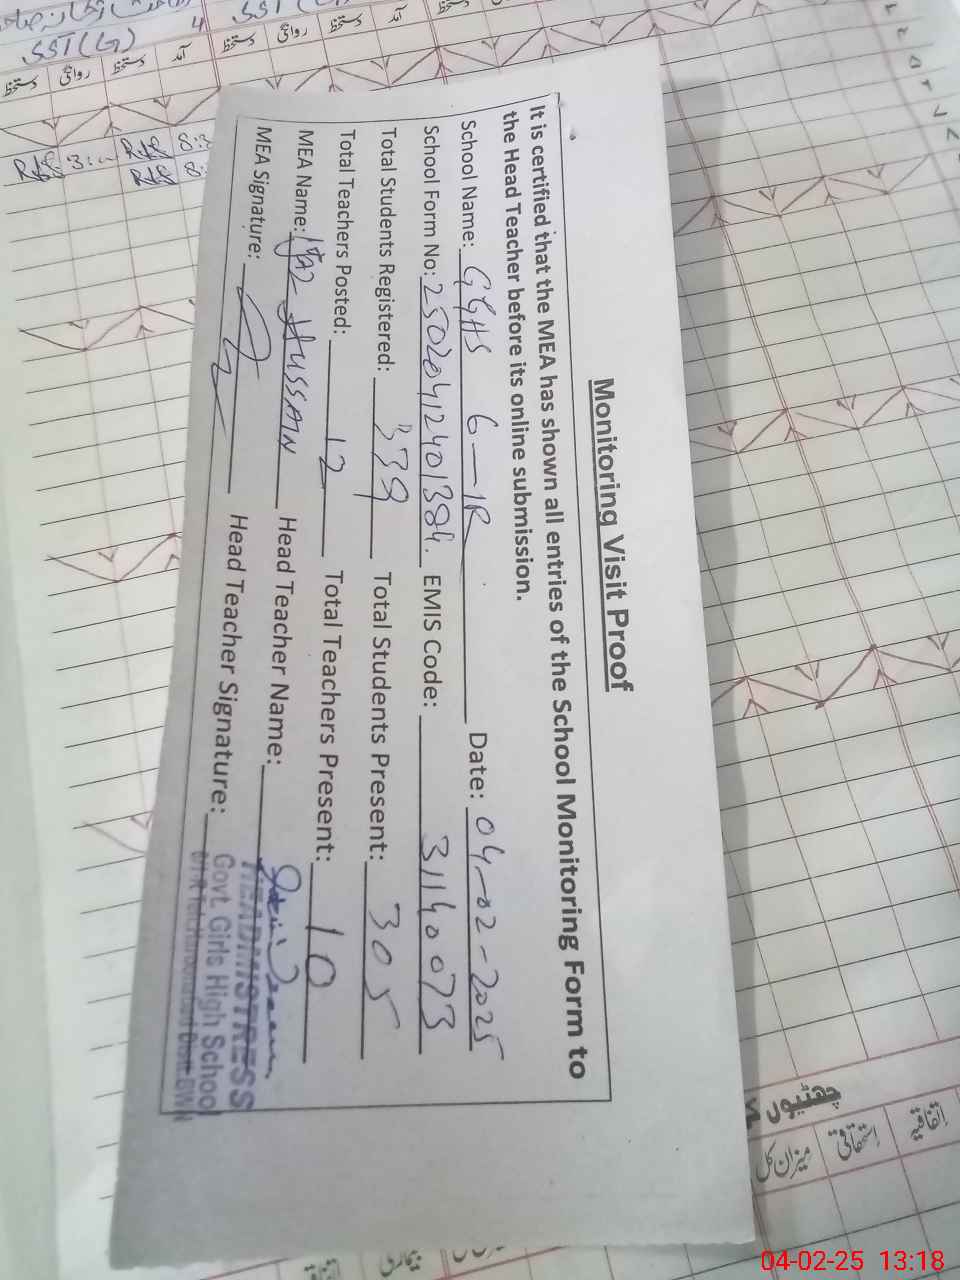 Monitoring Visit Proof
It is certified that the MEA has shown all entries of the School Monitoring Form to
the Head Teacher before its online submission.
School Name: GGHS 6-1R Date: 04-02-2025
School Form No: 25020412401384. EMIS Code: 31140073
Total Students Registered: 339 Total Students Present: 305
Total Teachers Posted: 12 Total Teachers Present: 10
MEA Name: HUSSAIN Head Teacher Name:
MEA Signature: Head Teacher Signature:
HEADMISTRESS
Govt. Girls High School
6/1-R Teh: Haroonabad Distt: BWN
SST(G)
4
دستخط روانگی دستخط آمد دستخط روانگی دستخط آمد
چھٹیوں
میزان کل
04-02-25 13:18